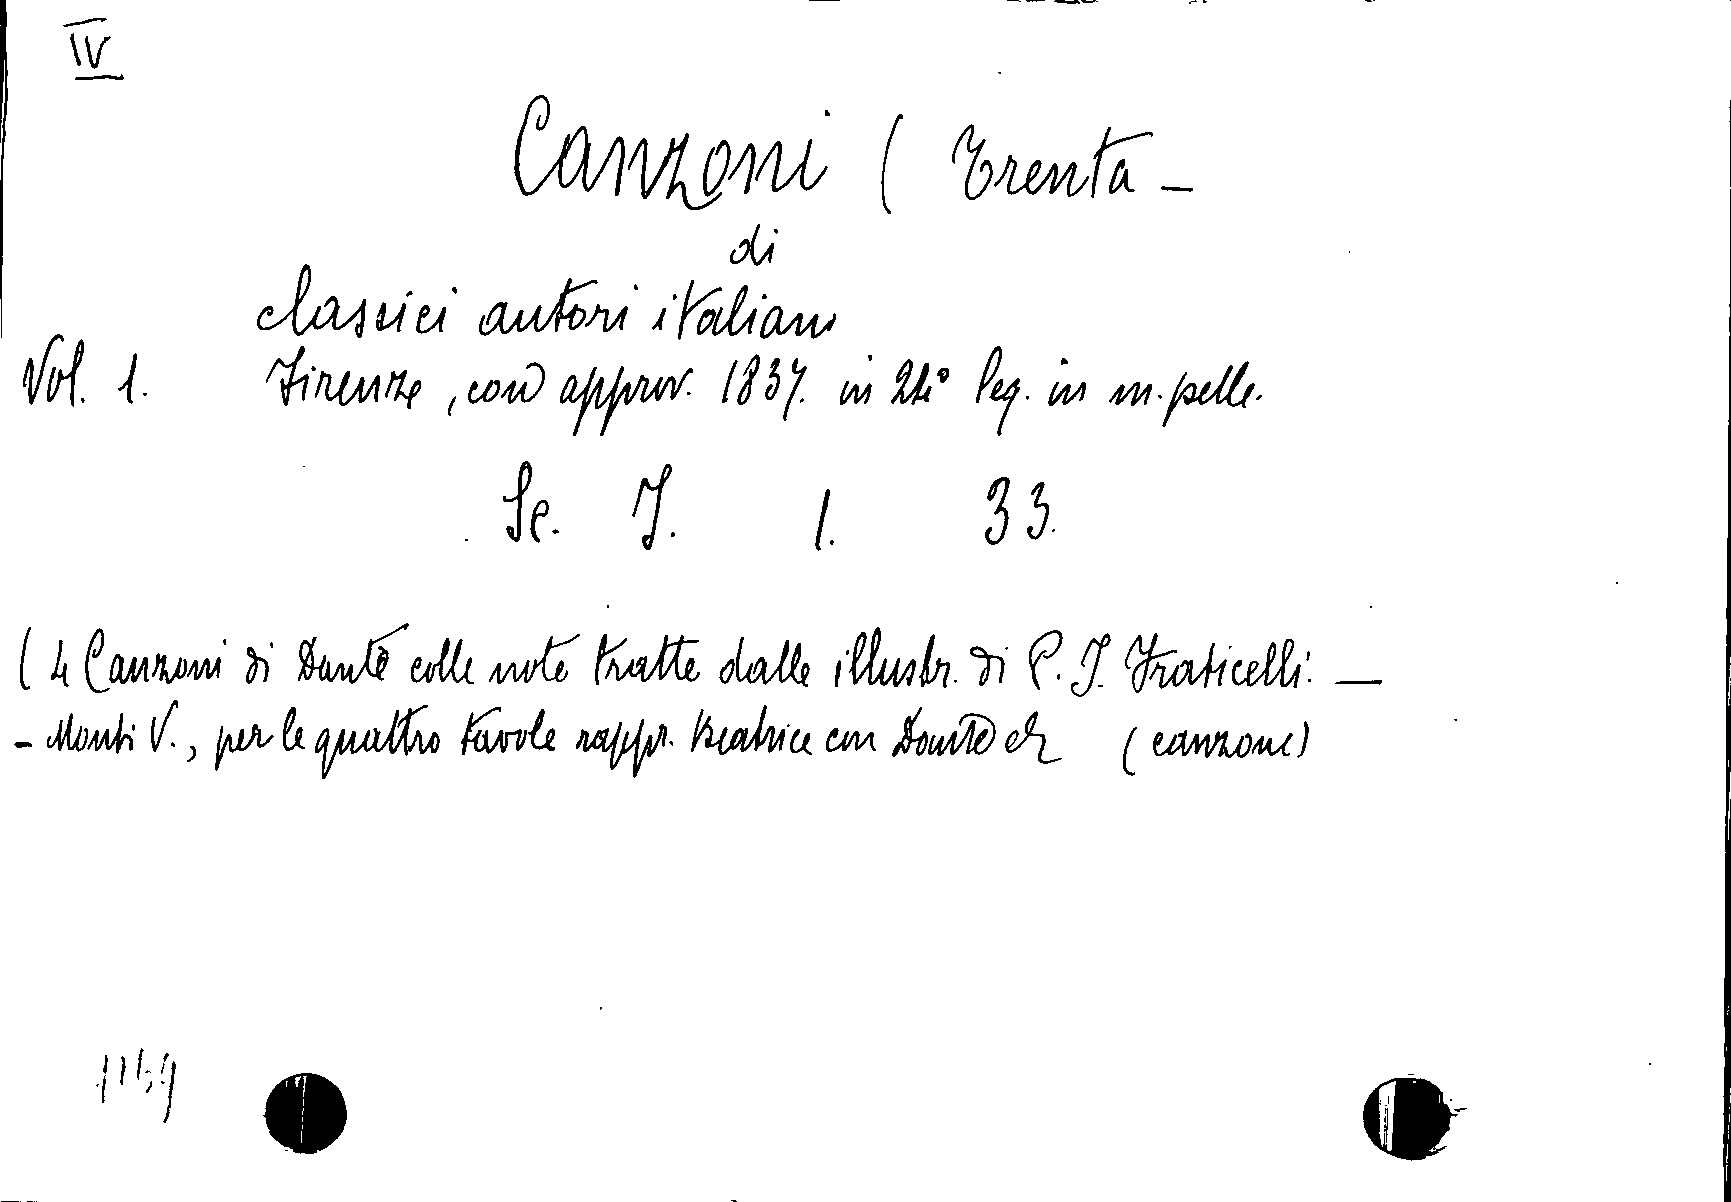 IV
Canzoni ( Trenta -
di
classici autori italiani
Vol. 1. Firenze, con approv. 1837. in 24° leg. in m. pelle.
Se. I. 1. 33.
( 4 Canzoni di Dante colle note tratte dalle illustr. di P. I. Fraticelli. —
- Monti V., per le quattro tavole rappr. Beatrice con Dante etc (canzone)